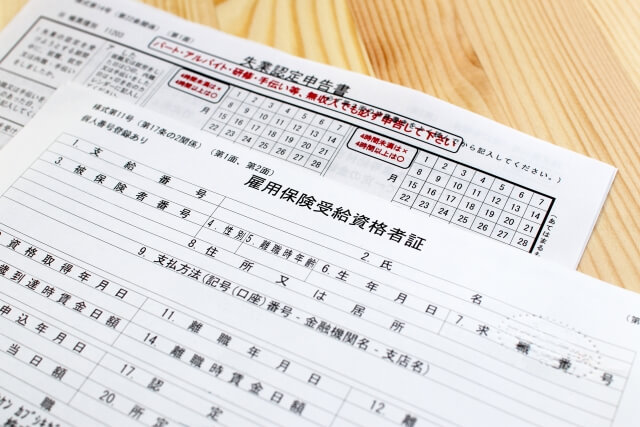 様式第14号（第22条関係）（第1面）
※ 帳票種別 11203
失業認定申告書
パート・アルバイト・研修・手伝い等、無収入でも必ず申告して下さい
から記入してください。）
4時間未満は×
4時間以上は○
月
1 2 3 4 5 6 7
8 9 10 11 12 13 14
15 16 17 18 19 20 21
22 23 24 25 26 27 28
4時間未満は×
4時間以上は○
月
1 2 3 4 5 6 7
8 9 10 11 12 13 14
15 16 17 18 19 20 21
22 23 24 25 26 27 28
様式第11号（第17条の2関係）（第1面、第2面）
個人番号登録あり
雇用保険受給資格者証
1. 支給番号
2. 氏名
3. 被保険者番号
4. 性別
5. 離職時年齢
6. 生年月日
7. 求職番号
8. 住所又は居所
9. 支払方法（記号（口座）番号 - 金融機関名 - 支店名）
資格取得年月日
11. 離職年月日
12 離
歳到達時賃金日額
14. 離職時賃金日額
申込年月日
17. 認定
当日額
20. 所定